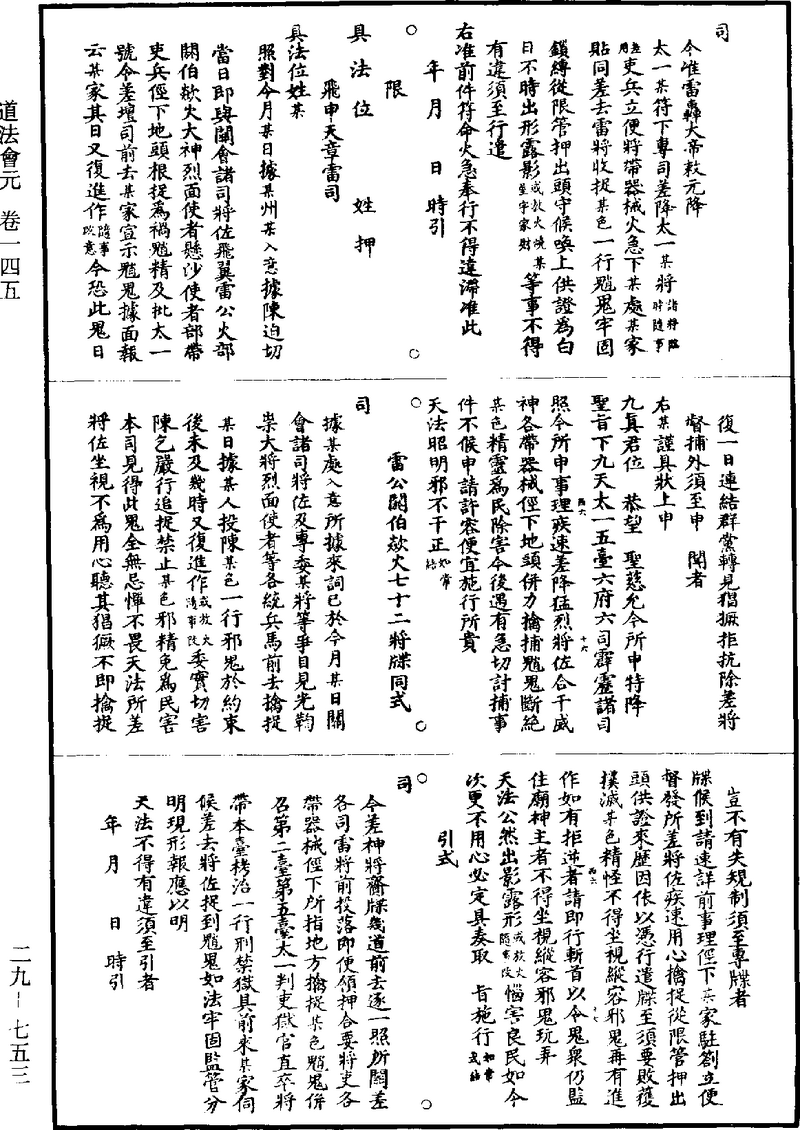 司
今准雷轟大帝敕元降
太一某符下專司差降太一某將諸將臨時隨事
立用吏兵立便將帶器械火急下某處某家
貼同差去雷將收捉某色一行魈鬼牢固
鎖縛從限管押出頭守候喚上供證爲白
日不時出形露影或放火燒某屋宇家財等事不得
有違須至行遣
右准前件符命火急奉行不得違滯准此
年 月 日 時引
限
具 法 位 姓 押
飛申天章雷司
具法位姓某
照對今月某日據某州某入意據陳迫切
當日即與關會諸司將佐飛翼雷公火部
閼伯歘火大神烈面使者懸沙使者部帶
吏兵徑下地頭根捉爲禍魈精及批太一
號令差壇司前去某家宣示魈鬼據面報
云某家其日又復進作隨事改意今恐此鬼日
復一日連結群黨轉見猖獗拒抗除差將
督捕外須至申 聞者
右某謹具狀上申
九真君位 恭望 聖慈允今所申特降
聖旨下九天太一五臺六府六司霹靂諸司
照今所申事理疾速差降猛烈將佐合干威
神各帶器械徑下地頭併力擒捕魈鬼斷絕
某色精靈爲民除害今後遇有急切討捕事
件不候申請許容便宜施行所貴
天法昭明邪不干正如常結
雷公閼伯歘火七十二將牒同式
司
據某處入意所據來詞已於今月某日關
會諸司將佐及專委某將等爭目見光鞫
祟大將烈面使者等各統兵馬前去擒捉
某日據某人投陳某色一行邪鬼於約束
後未及幾時又復進作或放火隨事改委實切害
陳乞嚴行追捉禁止某色邪精免爲民害
本司見得此鬼全無忌憚不畏天法所差
將佐坐視不爲用心聽其猖獗不即擒捉
豈不有失規制須至專牒者
牒候到請速詳前事理徑下某家駐劄立便
督發所差將佐疾速用心擒捉從限管押出
頭供證來歷因依以憑行遣牒至須要敗獲
撲滅某色精怪不得坐視縱容邪鬼再有進
作如有拒逆者請即行斬首以令鬼衆仍監
住廟神主者不得坐視縱容邪鬼玩弄
天法公然出影露形或放火隨事改惱害良民如今
次更不用心必定具奏取 旨施行如常式結
引式
司
今差神將齎牒幾道前去逐一照所關差
各司雷將前投落即便領押合要將吏各
帶器械徑下所指地方擒捉某色魈鬼併
召第二臺第五臺太一判吏獄官直卒將
帶本臺拷治一行刑禁獄具前來某家伺
候差去將佐捉到魈鬼如法牢固監管分
明現形報應以明
天法不得有違須至引者
年 月 日 時引
道法會元 卷一四五
二九—七五三